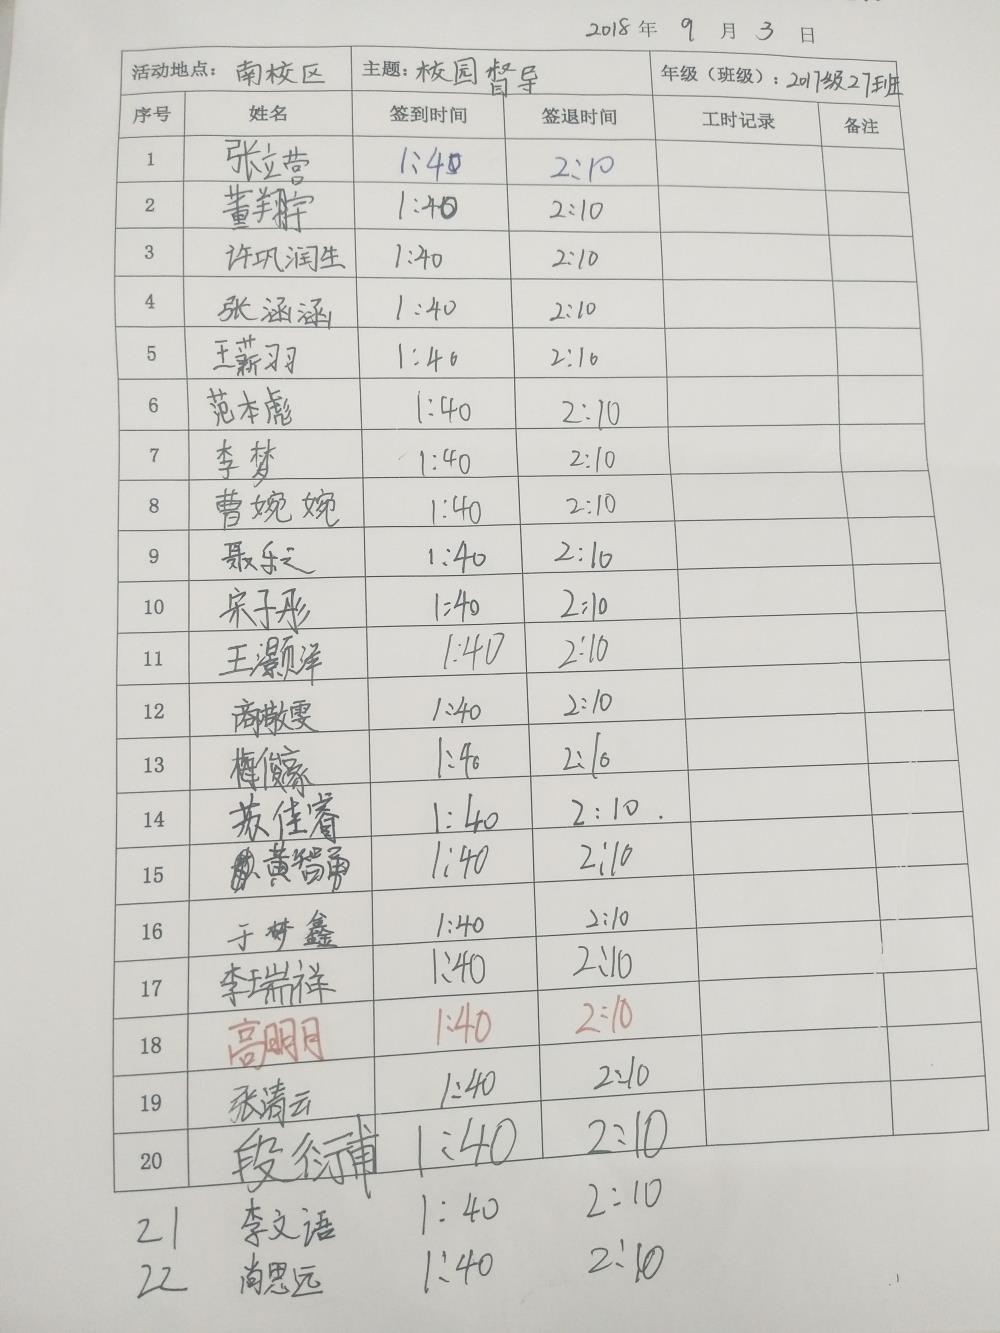 2018年 9 月 3 日
活动地点： 南校区 主题： 校园督导 年级（班级）： 2017级27班
序号 姓名 签到时间 签退时间 工时记录 备注
1 张立营 1:40 2:10
2 董翔宇 1:40 2:10
3 许巩润生 1:40 2:10
4 张涵涵 1:40 2:10
5 王薪羽 1:40 2:10
6 范本彪 1:40 2:10
7 李梦 1:40 2:10
8 曹婉婉 1:40 2:10
9 聂乐之 1:40 2:10
10 宋子彤 1:40 2:10
11 王灏洋 1:40 2:10
12 商懒雯 1:40 2:10
13 梅俊豪 1:40 2:10
14 苏佳睿 1:40 2:10.
15 黄智勇 1:40 2:10
16 于梦鑫 1:40 2:10
17 李瑞祥 1:40 2:10
18 高明月 1:40 2:10
19 张清云 1:40 2:10
20 段衍甫 1:40 2:10
21 李文语 1:40 2:10
22 尚思远 1:40 2:10